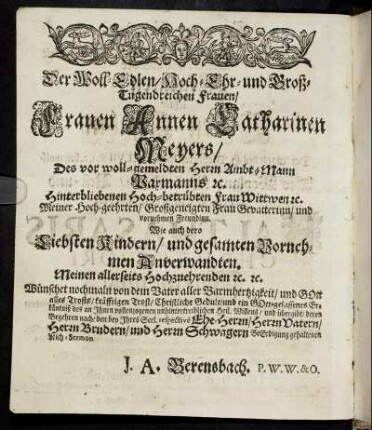 Der Woll-Edlen/ Hoch-Ehr- und Groß-
Tugendreichen Frauen/
Frauen Annen Catharinen
Meyers/
Des vor woll-gemeldten Herrn Ambt-Mann
Parmanns ꝛc.
Hinterbliebenen Hoch-betrübten Frau Wittwen ꝛc.
Meiner Hoch-geehrten/ Großgeneigten Frau Gevatterinn/ und
vornehmen Freundinn.
Wie auch dero
Liebsten Kindern/ und gesamten Vorneh-
men Anverwandten.
Meinen allerseits Hochzuehrenden ꝛc. ꝛc.
Wünschet nochmaln von dem Vater aller Barmhertzigkeit/ und GOtt
alles Trosts/ kräfftigen Trost/ Christliche Gedult/ und ein GOtt-gelassenes Er-
käntnis des an Ihnen vollenzogenen unhintertreiblichen Heil. Willens/ und übergibt/ deren
Begehren nach/ den bey Ihres Seel. respectivè Ehe-Herrn/ Herrn Vatern/
Herrn Brudern/ und Herrn Schwagern Beerdigung gehaltenen
Leich-Sermon
J. A. Berensbach. P. W. W. & O.